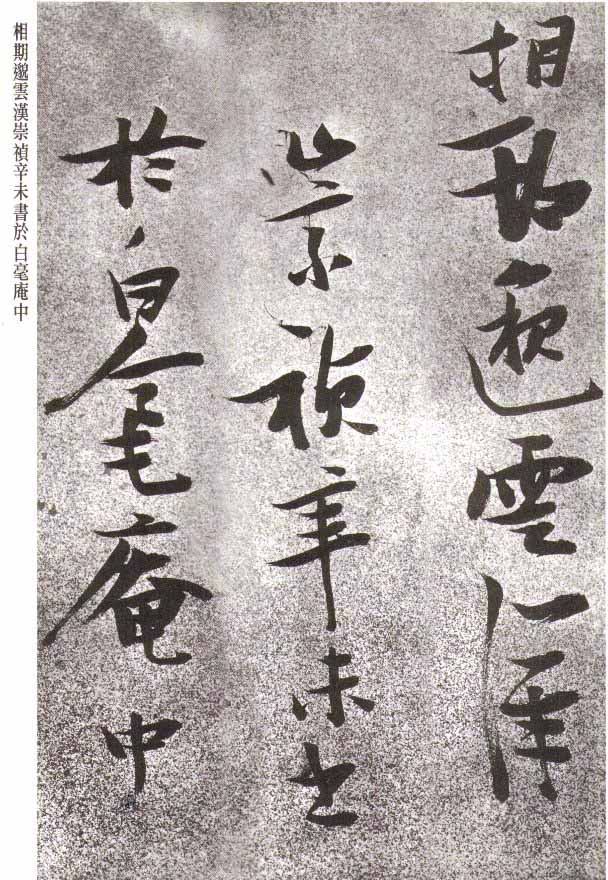 相期邈雲漢
崇禎辛未書
於白毫庵中
相期邈雲漢崇禎辛未書於白毫庵中